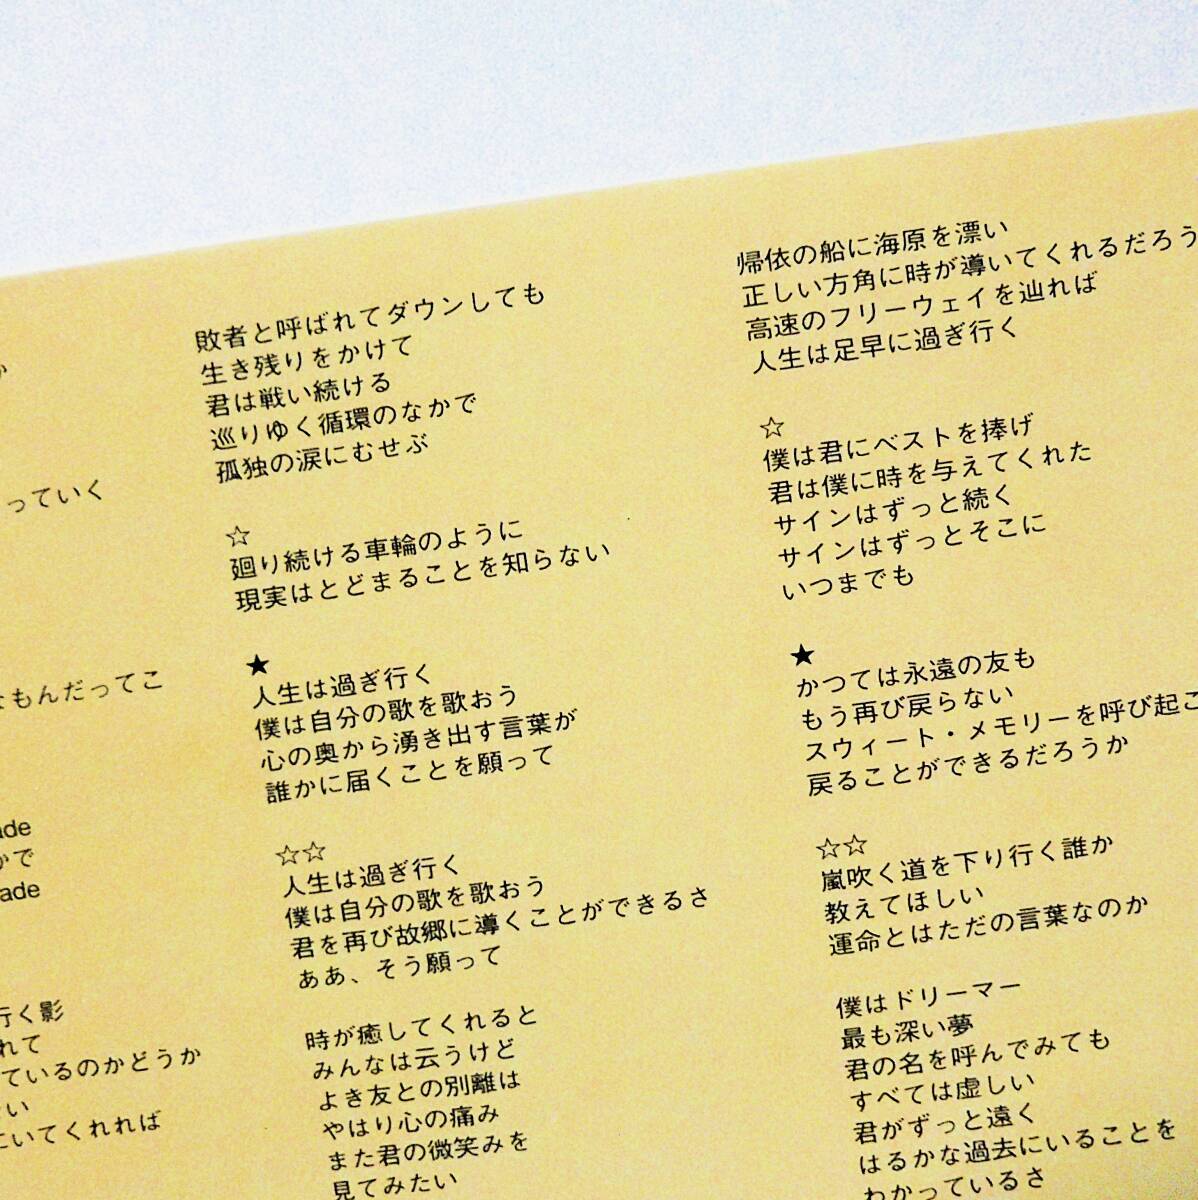 っていく
なもんだってこ
ade
かで
ade
行く影
れて
ているのかどうか
ない
にいてくれれば
敗者と呼ばれてダウンしても
生き残りをかけて
君は戦い続ける
巡りゆく循環のなかで
孤独の涙にむせぶ
☆
廻り続ける車輪のように
現実はとどまることを知らない
★
人生は過ぎ行く
僕は自分の歌を歌おう
心の奥から湧き出す言葉が
誰かに届くことを願って
☆☆
人生は過ぎ行く
僕は自分の歌を歌おう
君を再び故郷に導くことができるさ
ああ、そう願って
時が癒してくれると
みんなは云うけど
よき友との別離は
やはり心の痛み
また君の微笑みを
見てみたい
帰依の船に海原を漂い
正しい方角に時が導いてくれるだろう
高速のフリーウェイを辿れば
人生は足早に過ぎ行く
☆
僕は君にベストを捧げ
君は僕に時を与えてくれた
サインはずっと続く
サインはずっとそこに
いつまでも
★
かつては永遠の友も
もう再び戻らない
スウィート・メモリーを呼び起こ
戻ることができるだろうか
☆☆
嵐吹く道を下り行く誰か
教えてほしい
運命とはただの言葉なのか
僕はドリーマー
最も深い夢
君の名を呼んでみても
すべては虚しい
君がずっと遠く
はるかな過去にいることを
わかっているさ